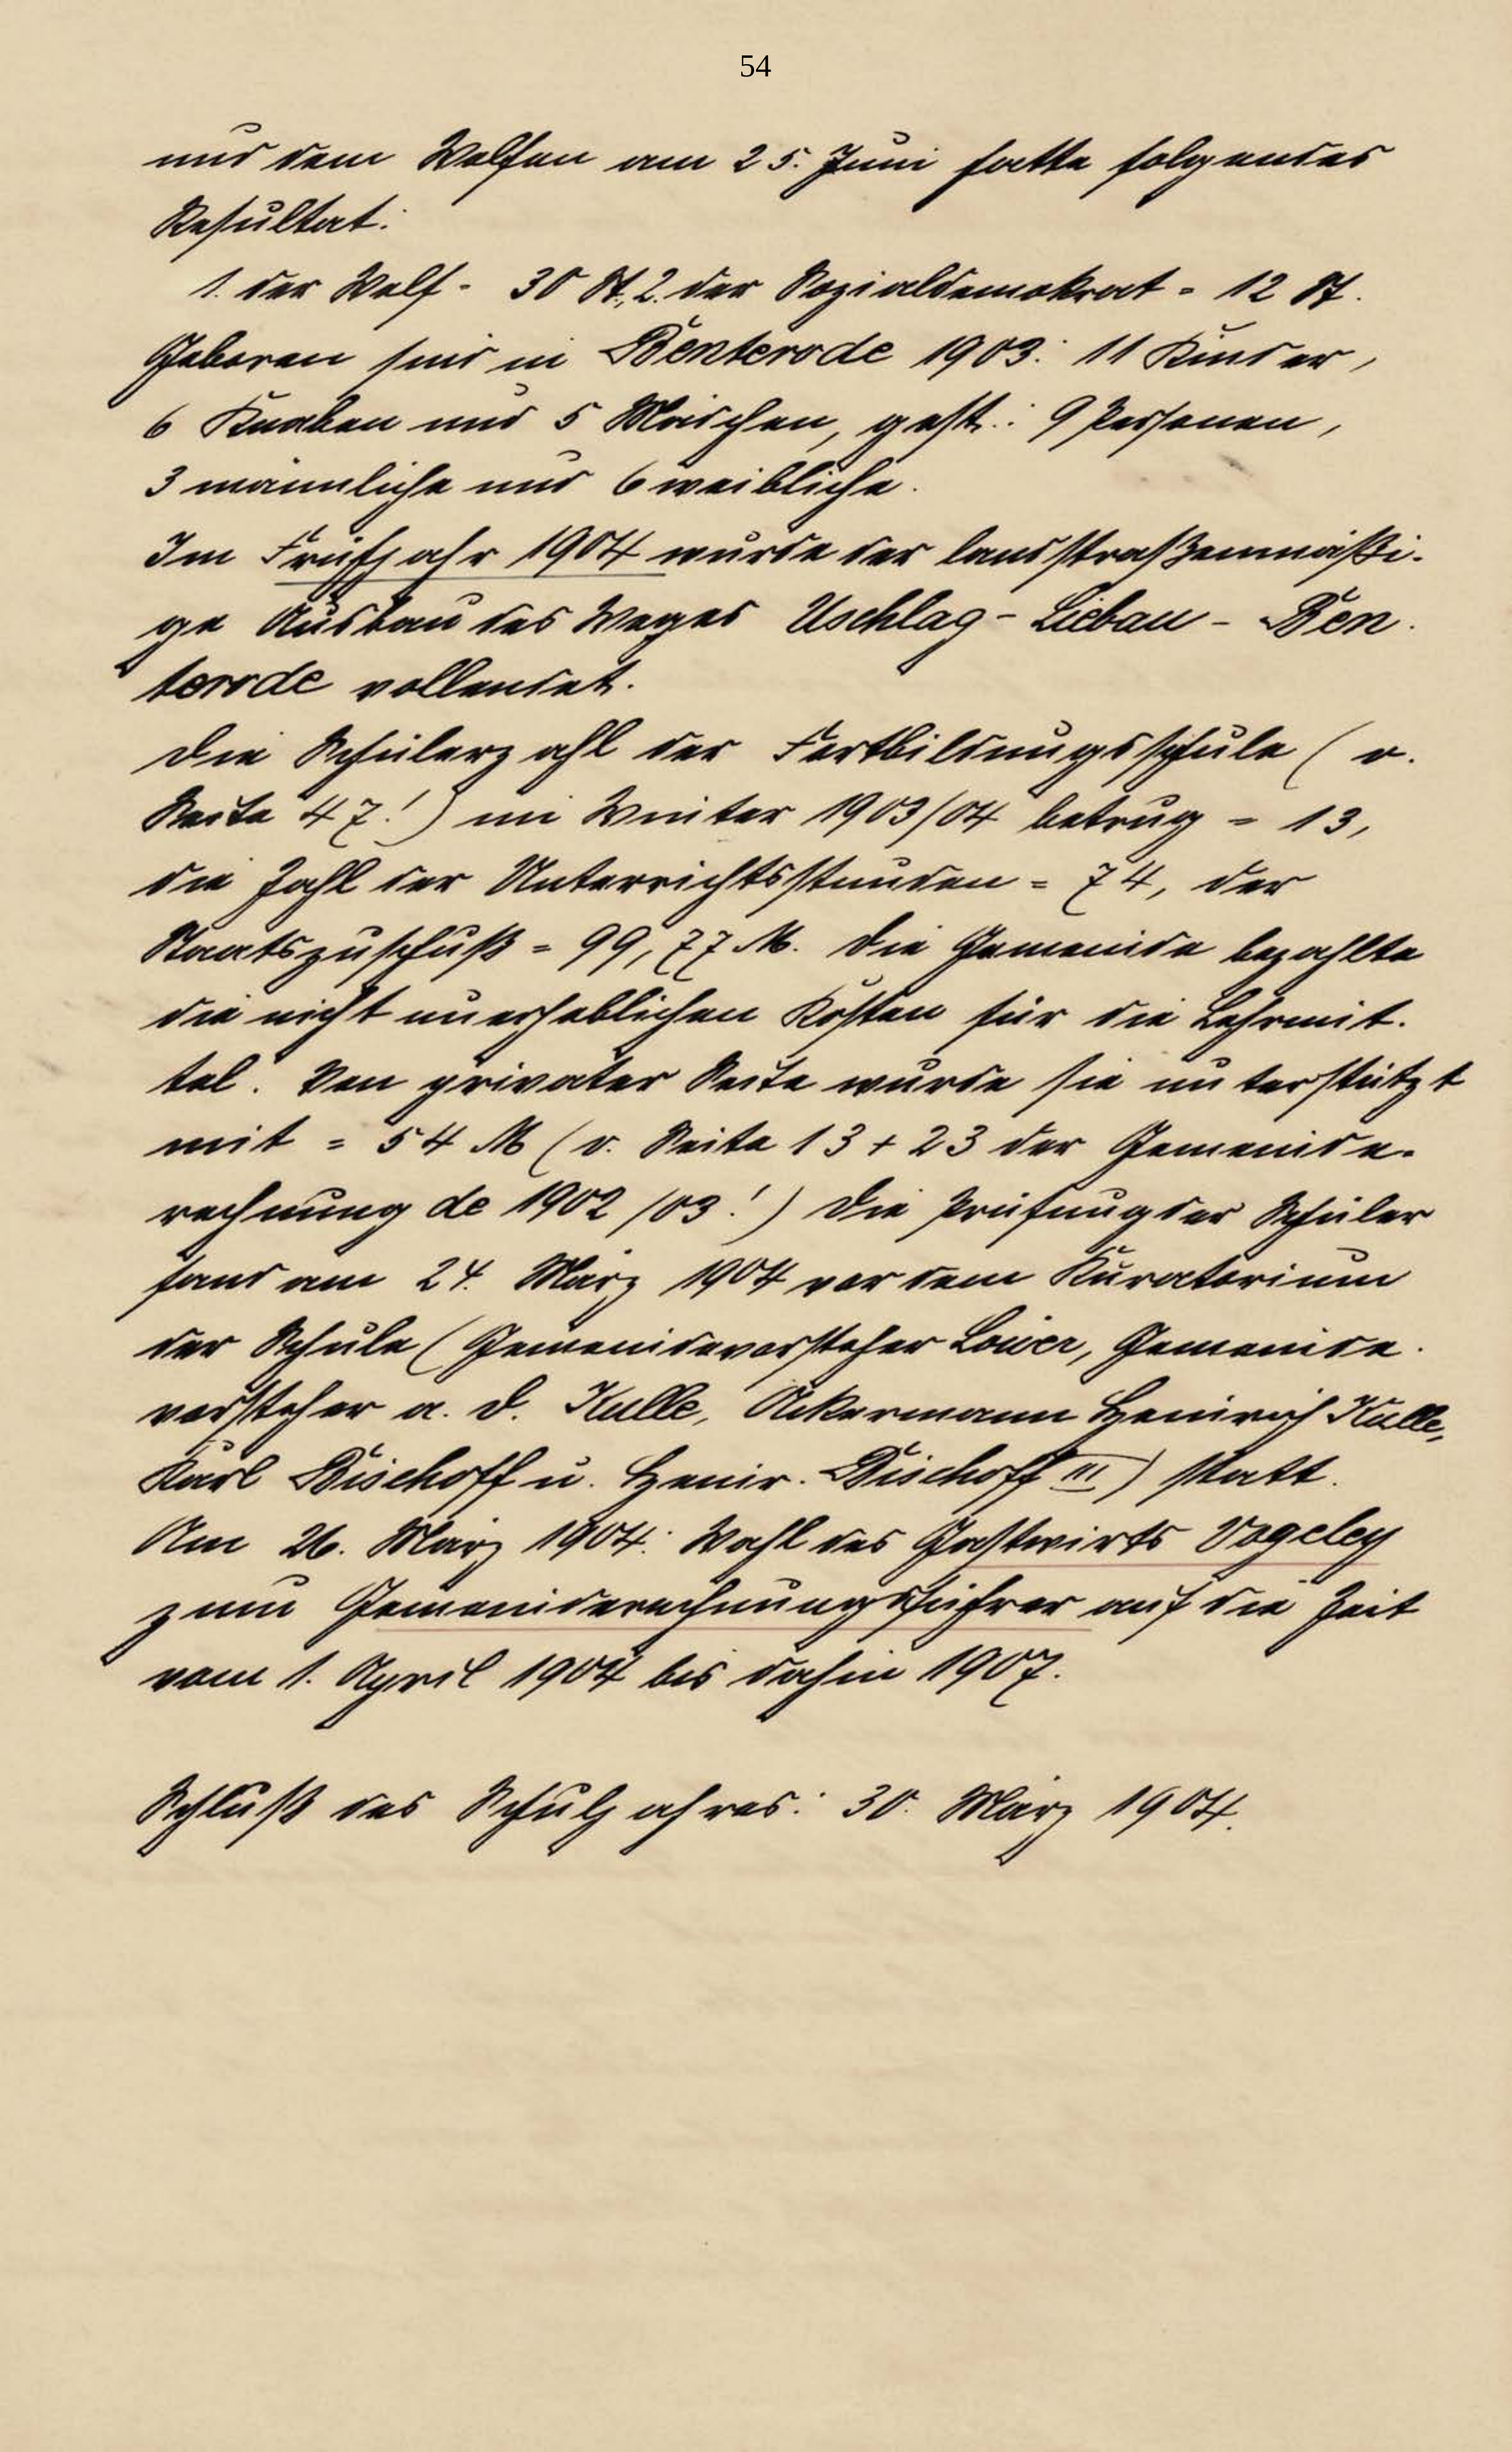 54
und dem Welfen am 25. Juni hatte folgendes
Resultat:
1. der Welf - 30 St., 2. der Sozialdemokrat = 12 St.
Geboren sind in Benterode 1903: 11 Kinder,
6 Knaben und 5 Mädchen, gest.: 9 Personen,
3 männliche und 6 weibliche.
Im Frühjahr 1904 wurde der landstraßenmäßi-
ge Ausbau des Weges Uschlag - Liebau - Ben-
terode vollendet.
Die Schülerzahl der Fortbildungsschule (v.
Seite 47!) im Winter 1903/04 betrug = 13,
die Zahl der Unterrichtsstunden = 74, der
Staatszuschuß = 99,77 M. Die Gemeinde bezahlte
die nicht unerheblichen Kosten für die Lehrmit-
tel. Von privater Seite wurde sie unterstützt
mit = 54 M (v. Seite 13 + 23 der Gemeinde-
rechnung de 1902/03!) Die Prüfung der Schüler
fand am 24. März 1904 vor dem Kuratorium
der Schule (Gemeindevorsteher Löwer, Gemeinde-
vorsteher a. D. Kulle, Ackermann Heinrich Kulle,
Karl Bischoff u. Heinr. Bischoff III) statt.
Am 26. März 1904: Wahl des Gastwirts Vogeley
zum Gemeinderechnungsführer auf die Zeit
vom 1. April 1904 bis dahin 1907.
Schluß des Schuljahres: 30. März 1904.